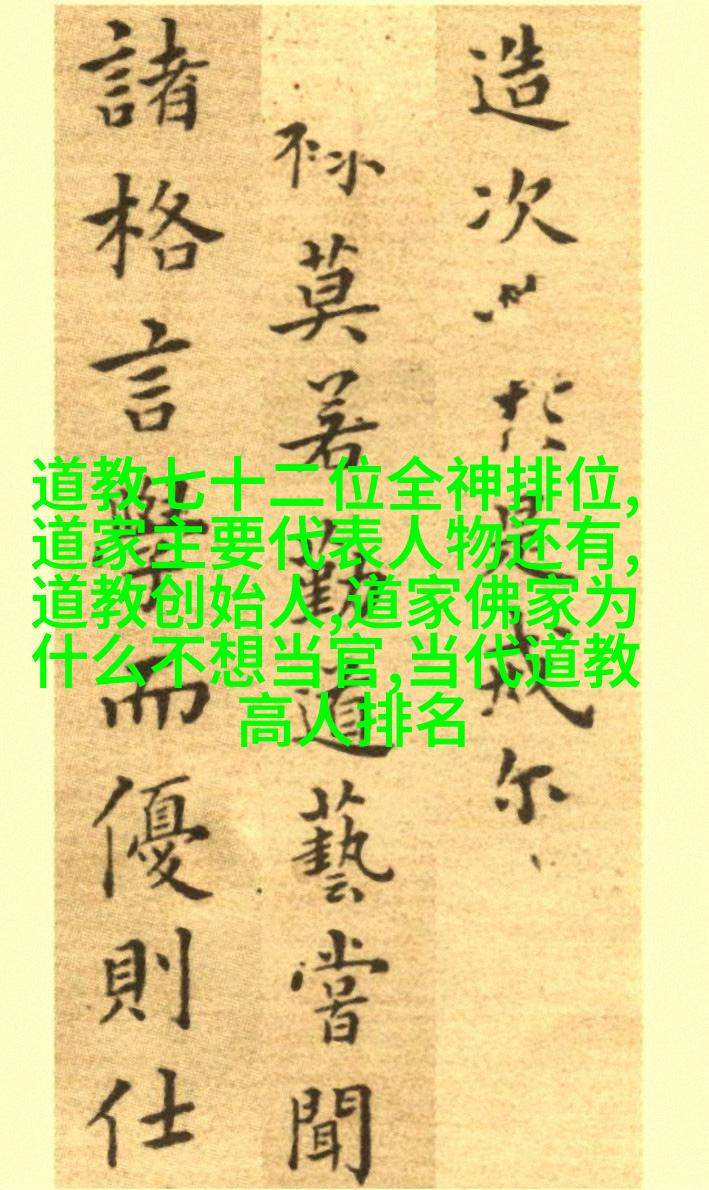 造次必於是戒尔
莫若勤道藝嘗聞
諸格言學而優則仕
道教七十二位全神排位,
道家主要代表人物还有,
道教创始人,道家佛家为
什么不想当官,当代道教
高人排名